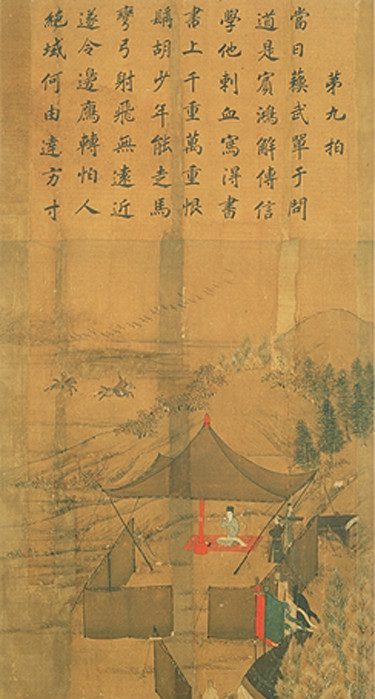 第九拍
當日蘇武單于問
道是賓鴻解傳信
學他刺血寫得書
書上千重萬重恨
髯胡少年能走馬
彎弓射飛無遠近
遂令邊鴈轉怕人
絕域何由達方寸